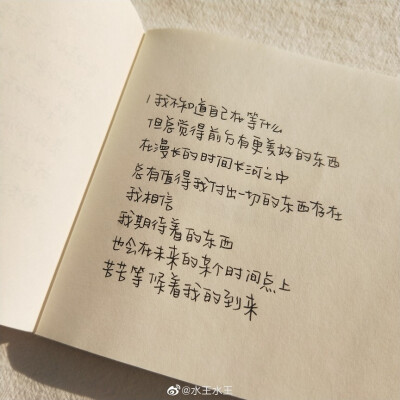 / 我不知道自己在等什么
但总觉得前方有更美好的东西
在漫长的时间长河之中
总有值得我付出一切的东西存在
我相信
我期待着的东西
也会在未来的某个时间点上
苦苦等候着我的到来
@水王水王